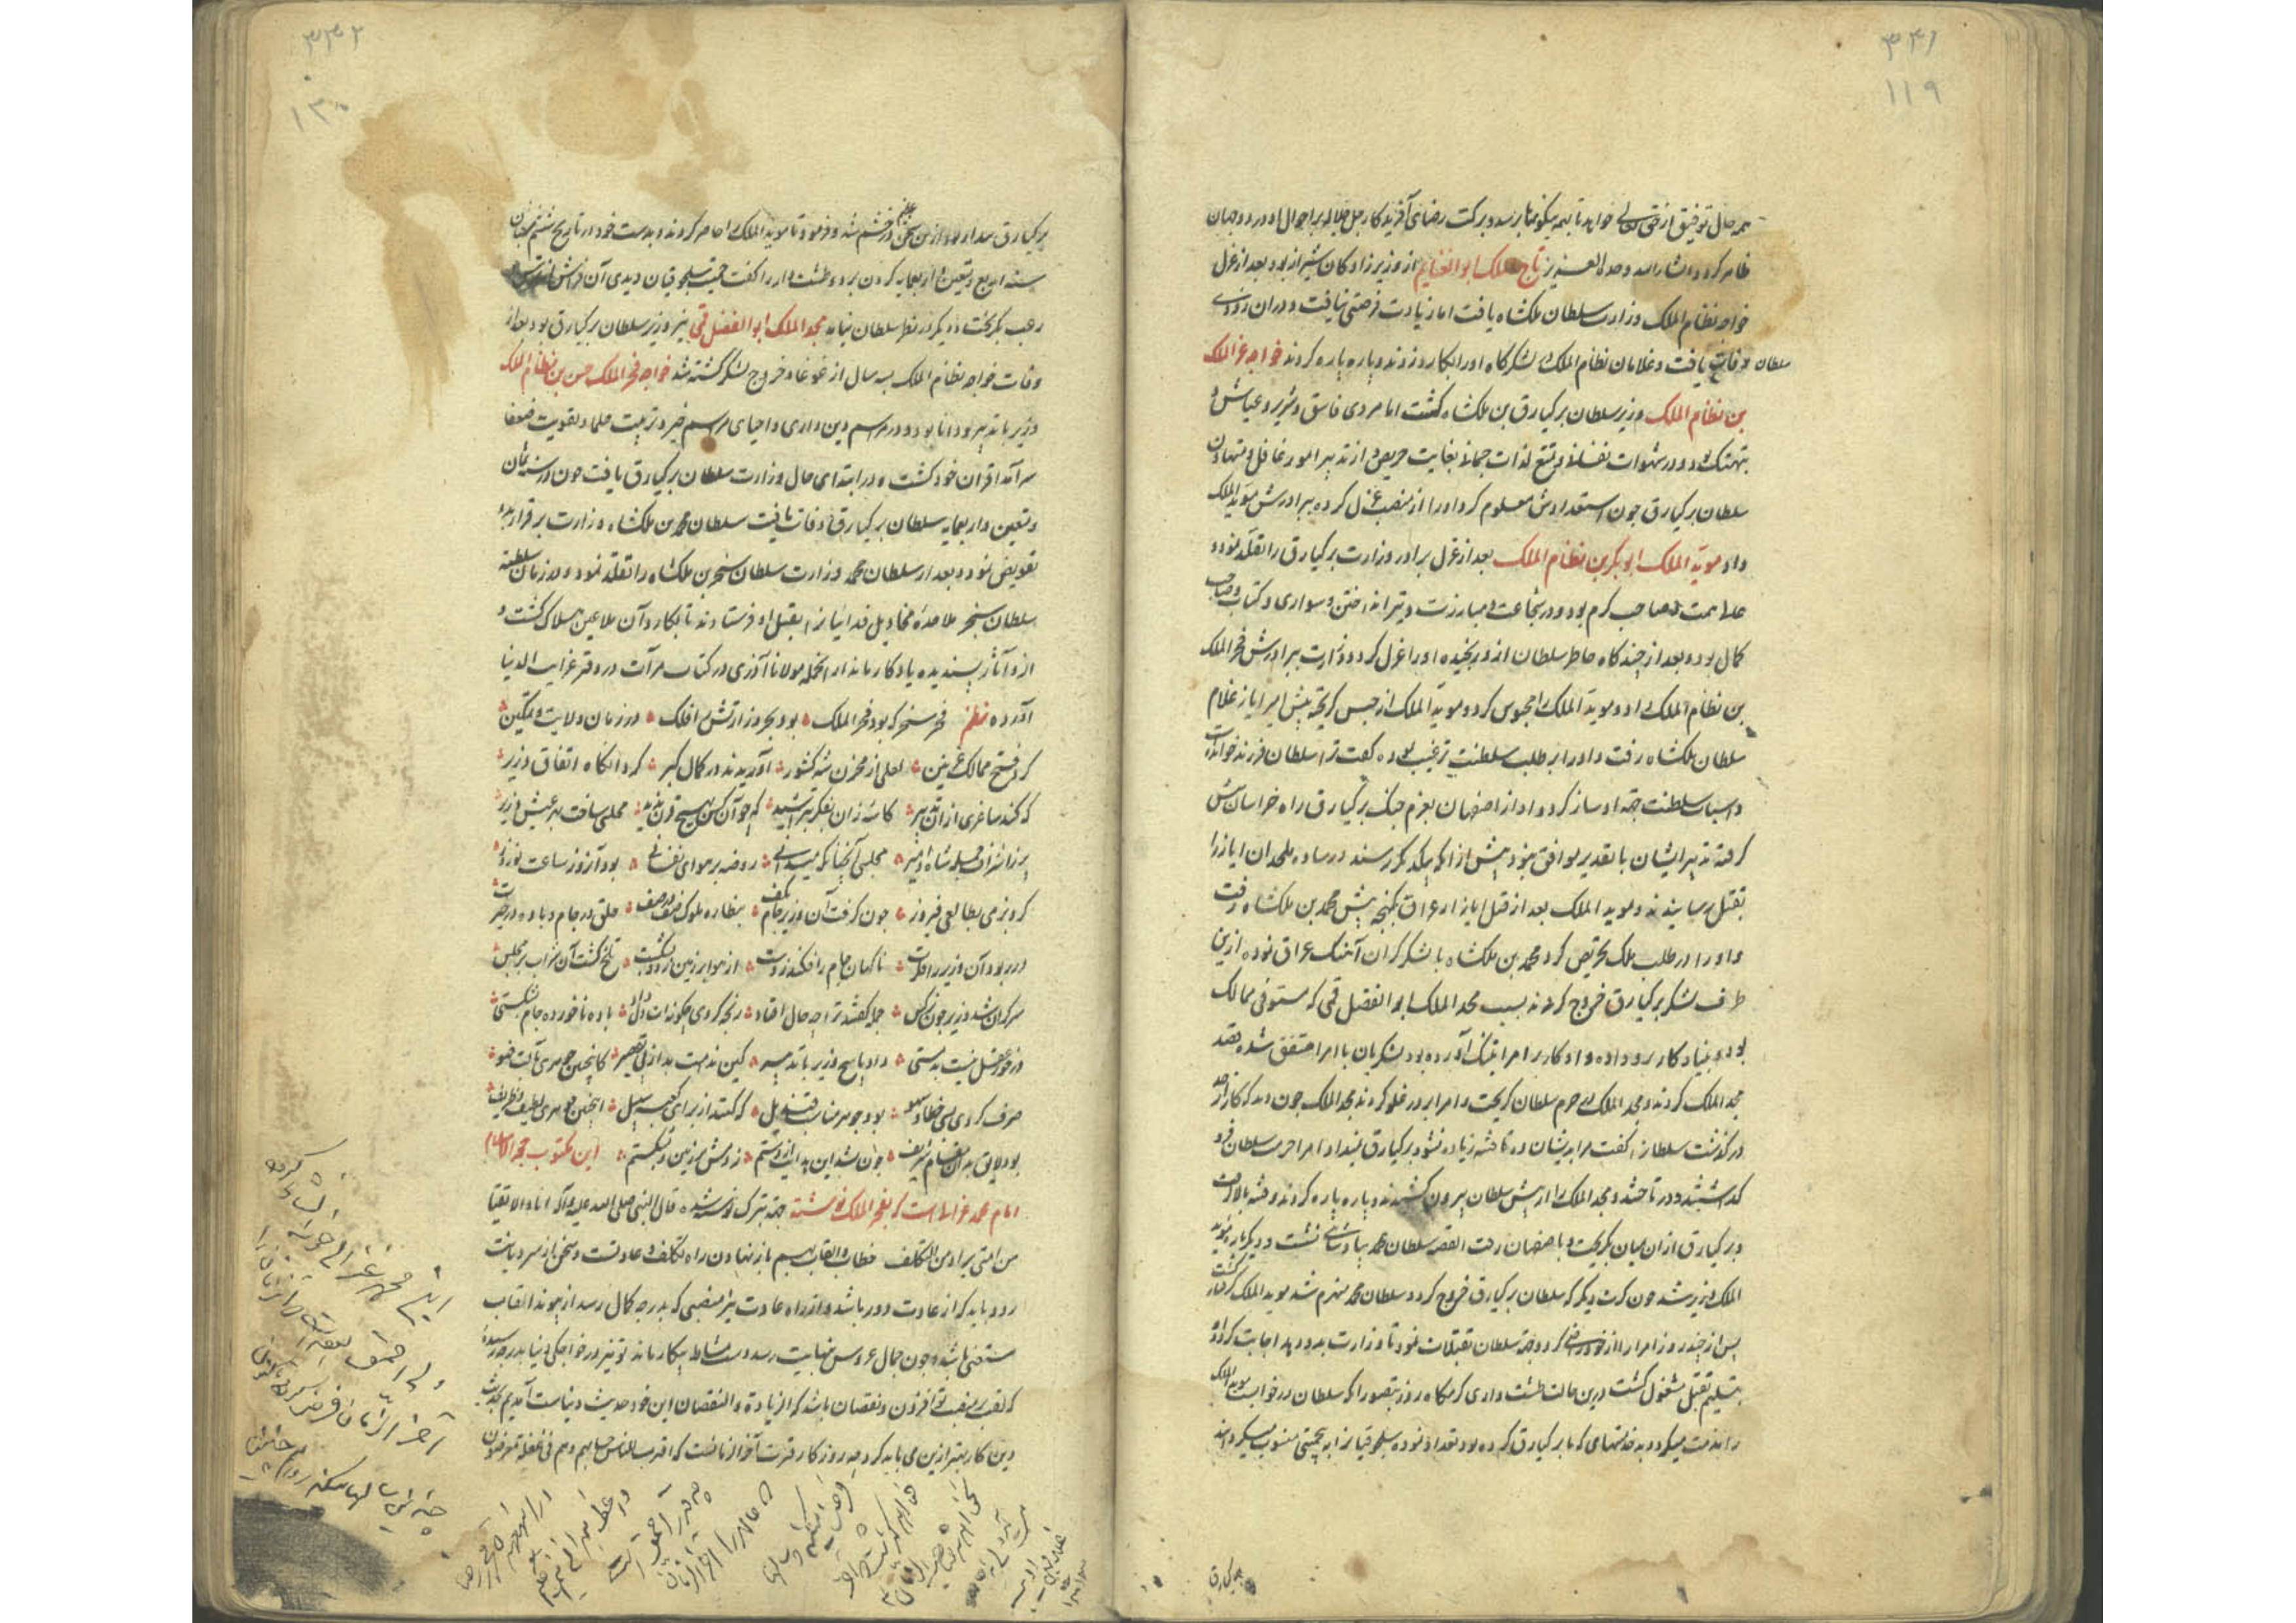 ۳۴۱
۱۱۹
همه حال توفیق از حق تعالی خواهد تا بهمه نیکوییها برسد و برکت رضای آفریدکار جل جلاله بر احوال او در دو جهان
ظاهر کردد انشاء الله وحده العزیز تاج الملک ابو الغنایم از وزیر زادکان شیراز بود بعد از عزل
خواجه نظام الملک وزارت سلطان ملکشاه یافت اما زیادت فرصتی نیافت و در آن زودی
سلطان وفات یافت و غلامان نظام الملک در لشکرکاه او را بکارد زدند و پاره پاره کردند خواجه عز الملک
بن نظام الملک وزیر سلطان برکیارق بن ملکشاه کشت اما مردی فاسق و شریر و عیاش و
متهتک بود و در شهوات نفسانی و تمتع لذات جسمانی بغایت حریص و از تدبیر امور غافل و متهاون
سلطان برکیارق چون استعدادش معلوم کرد او را از منصب عزل کرده ببرادرش موید الملک
داد موید الملک ابو بکر بن نظام الملک بعد از عزل برادر وزارت برکیارق را تقلد نمود و
عالی همت و صاحب کرم بود و در شجاعت و مبارزت و تیر انداختن و سواری و کتابت صاحب
کمال بود و بعد از چند کاه خاطر سلطان ازو رنجیده او را عزل کرد و وزارت ببرادرش فخر الملک
بن نظام الملک داد و موید الملک را محبوس کرد و موید الملک از حبس کریخته پیش امیر ایاز غلام
سلطان ملکشاه رفت و او را بر طلب سلطنت ترغیب نموده کفت ترا سلطان فرزند خوانده است
و اسباب سلطنت جهة او ساز کرد و او از اصفهان بعزم جنک برکیارق راه خراسان پیش
کرفته تدبیر ایشان با تقدیر موافق نبود پیش از آنکه بیکدیکر رسند در ساوه ملحدان ایاز را
بقتل رسانیدند و موید الملک بعد از قتل ایاز از عراق بکنجه پیش محمد بن ملکشاه رفت
و او را در طلب ملک تحریص کرد محمد بن ملکشاه با لشکر کران آهنک عراق نمود و ازین
طرف لشکر برکیارق خروج کردند بسبب مجد الملک ابو الفضل قمی که مستوفی ممالک
بود و بنیاد کار بر و داده و او کار بر امرا بتنک آورده بود لشکریان با امرا متفق شده قصد
مجد الملک کردند و مجد الملک در حرم سلطان کریخت و امرا بر در غلو کردند مجد الملک چون دید که کار از حد
در کذشت سلطان را کفت مرا بدیشان ده تا فتنه زیاده نشود برکیارق نمیداد امرا حرمت سلطان فرو
کذاشتند و در تاختند و مجد الملک را از پیش سلطان بیرون کشیدند و پاره پاره کردند و فتنه بالا کرفت
و برکیارق از آن میان بکریخت و باصفهان رفت القصه سلطان محمد بپادشاهی نشست و دیکر باره موید
الملک وزیر شد چون کرت دیکر که سلطان برکیارق خروج کرد و سلطان محمد منهزم شد موید الملک کرفتار کشت
پس از چند روز امرا را از خود راضی کرد و جهة سلطان تقبلات نمود تا وزارت بدو دهد اجابت کرد و او
بتسلیم تقبل مشغول کشت درین حالت طشت داری کرمکاه روز بتصور آنکه سلطان در خوابست موید الملک
را مذمت میکرد و بد خدمتیهای که با برکیارق کرده بود تعداد نموده سلجوقیان را به بیحمیتی منسوب میکردانید
برکیارق
۳۴۲
۱۲۰
برکیارق بیدار بود از این سخن در خشم شد و فرمود تا موید الملک را حاضر کردند و بدست خود در تاریخ ششم شعبان
سنه اربع و تسعین و اربعمایه کردن بزد و طشت دار را کفت حمیت سلجوقیان دیدی آن فراش از ترس
و رعب بکریخت و دیکر در نظر سلطان نیامد مجد الملک ابو الفضل قمی نیز وزیر سلطان برکیارق بود بعد از
وفات خواجه نظام الملک به سه سال از غوغا و خروج لشکر کشته شد خواجه فخر الملک حسن بن نظام الملک
وزیر با تدبیر و دانا بود و در مراسم دین داری و احیای مراسم خیر و تربیت علما و تقویت ضعفا
سرآمد اقران خود کشت و در ابتدای حال وزارت سلطان برکیارق یافت چون در سنه ثمان
و تسعین و اربعمایه سلطان برکیارق وفات یافت سلطان محمد بن ملکشاه وزارت برقرار بدو
تفویض نمود و بعد از سلطان محمد وزارت سلطان سنجر بن ملکشاه را تقلد نمود و در زمان سلطنت
سلطان سنجر ملاحده مخاذیل فدائیان را بقتل او فرستادند تا بکارد آن ملاعین هلاک کشت و
ازو آثار پسندیده یادکار ماند از آنجمله مولانا آذری در کتاب مرآت در دفتر غرایب الدنیا
آورده نظم فخر سنجر که بود فخر الملک ٭ بود بحر وزارتش را فلک ٭ در زمان ولایت و تمکین
کرد فتح ممالک غزنین ٭ لعلی از مخزن شه کشور ٭ آوریدند در کمال کبر ٭ کرد آنکاه اتفاق وزیر
که کند ساغری از آن تدبیر ٭ کاسه زان بفکر بتراشید ٭ که چو آن کس بهیچ قرن ندید ٭ مجلسی ساخت بهر عیش وزیر
بزر اشراف جمله شاه و امیر ٭ مجلسی آنچنانکه میدانی ٭ روضه بر هوای نفسانی ٭ بود آنروز ساعت نوروز
کرد بزمی بطالعی فیروز ٭ چون کرفت آن وزیر جام بکف ٭ بنظاره ملوک صف در صف ٭ خلق در جام و باده در حیرت
در ربود آن وزیر را فکرت ٭ ناکهان جام را فکند ز دست ٭ از هوا بر زمین زد و بشکست ٭ تلخ کشت آن شراب بر مجلس
سرکران شد وزیر چون نرکس ٭ جمله کفتند ترا چه حال افتاد ٭ رنجه کردی چکونه ات دل داد ٭ باده ناخورده جام بشکستی
در خور عقل نیست بدمستی ٭ داد پاسخ وزیر با تدبیر ٭ کین ندامت بد از پی تقصیر ٭ کانچنین جوهری تا آلت ضو
صرف کردی بسی خطا و سهو ٭ بود جوهر مناسب قندیل ٭ که کنند از برای کعبه سبیل ٭ اینچنین جوهری لطیف و ظریف
بود لایق بدان مقام شریف ٭ چون نشد این بدایت از دستم ٭ زدمش بر زمین و بشکستم ٭ این مکتوب حجة الاسلام
امام محمد غزالی است که بفخر الملک نوشته جهة تبرک نوشته شد قال النبی صلی الله علیه و آله انا و الاتقیا
من امتی براء من التکلف خطاب و القاب بهم باز نهادن راه تکلف و عادتست و سخن از سر دیانت
رود باید که از عادت دور باشد و از راه عادت نیز منصبی که بدرجه کمال رسد از پیوند القاب
مستغنی باشد و چون جمال عروس بنهایت رسد دست مشاطه بیکار ماند تو نیز در خواجکی دنیا بدرجه رسیده
که لقب بر منصب تو افزودن و نقصان باشد که الزیادة و النقصان این خود حدیث دنیاست آمدیم بحدیث
دین کار بهتر ازین می باید کرد چه روزکار فترت آخر الزمانست که اقترب للناس حسابهم و هم فی غفلة معرضون